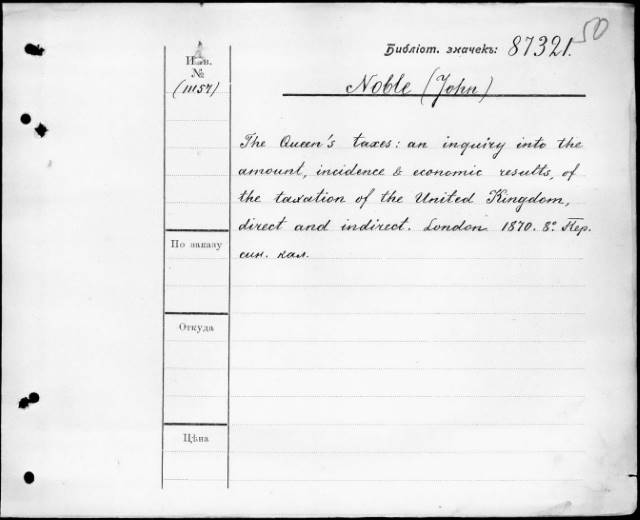 50
Библіот. значекъ: 87321.
Инв.
№
(11157)
Noble (John)
The Queen's taxes: an inquiry into the
amount, incidence & economic results, of
the taxation of the United Kingdom,
direct and indirect. London 1870. 8°. Пер.
син. кал.
По заказу
Откуда
Цѣна